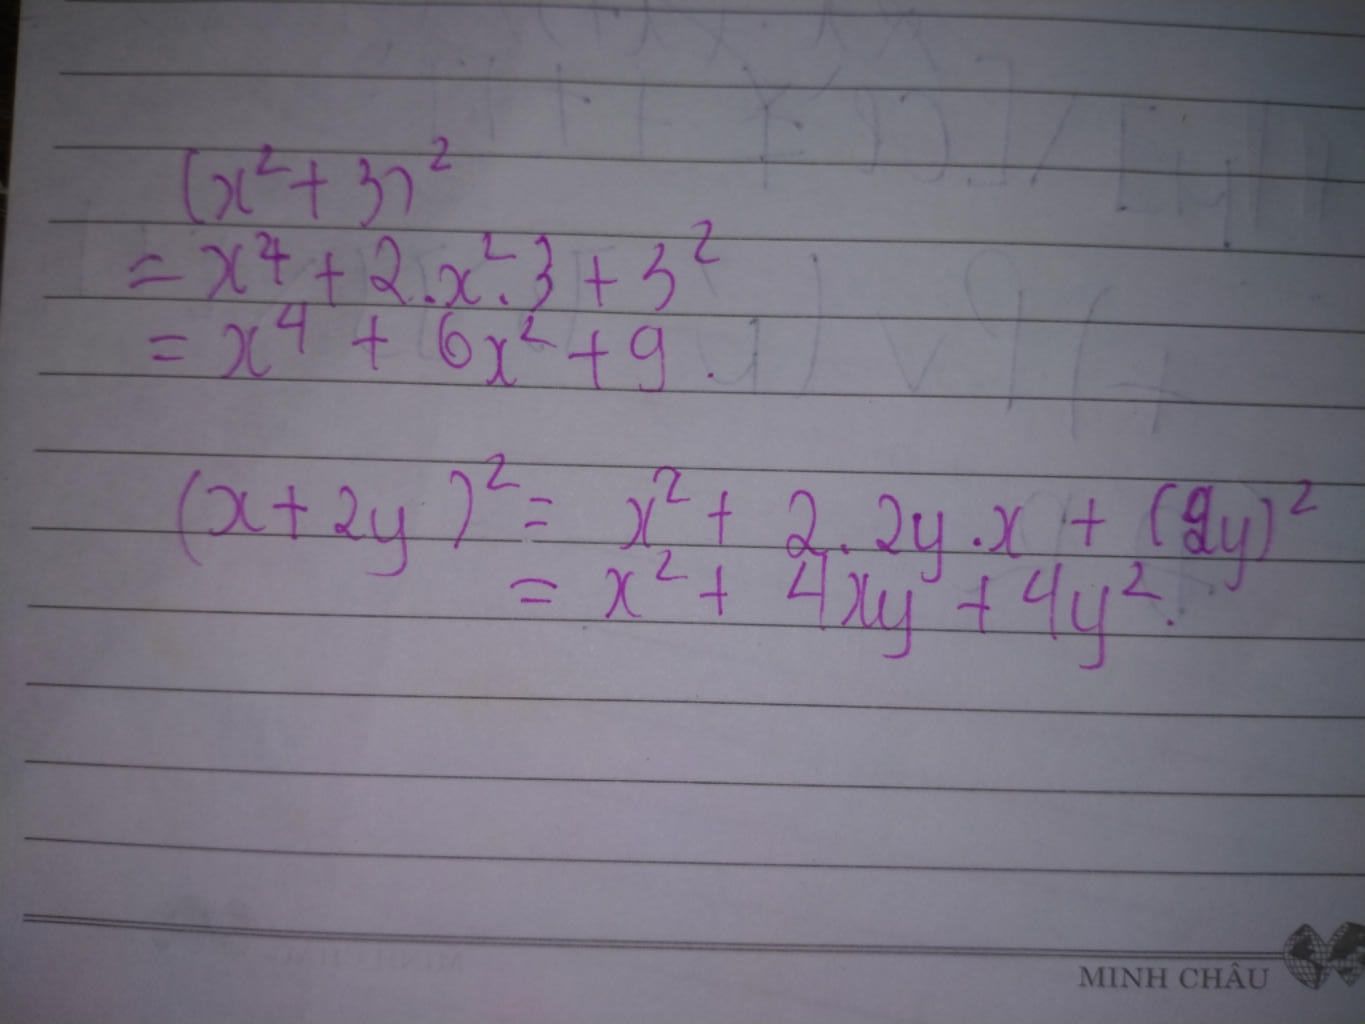 (x²+3)²
= x⁴ + 2.x².3 + 3²
= x⁴ + 6x² + 9.
(x+2y)² = x² + 2.2y.x + (2y)²
= x² + 4xy + 4y².
MINH CHÂU